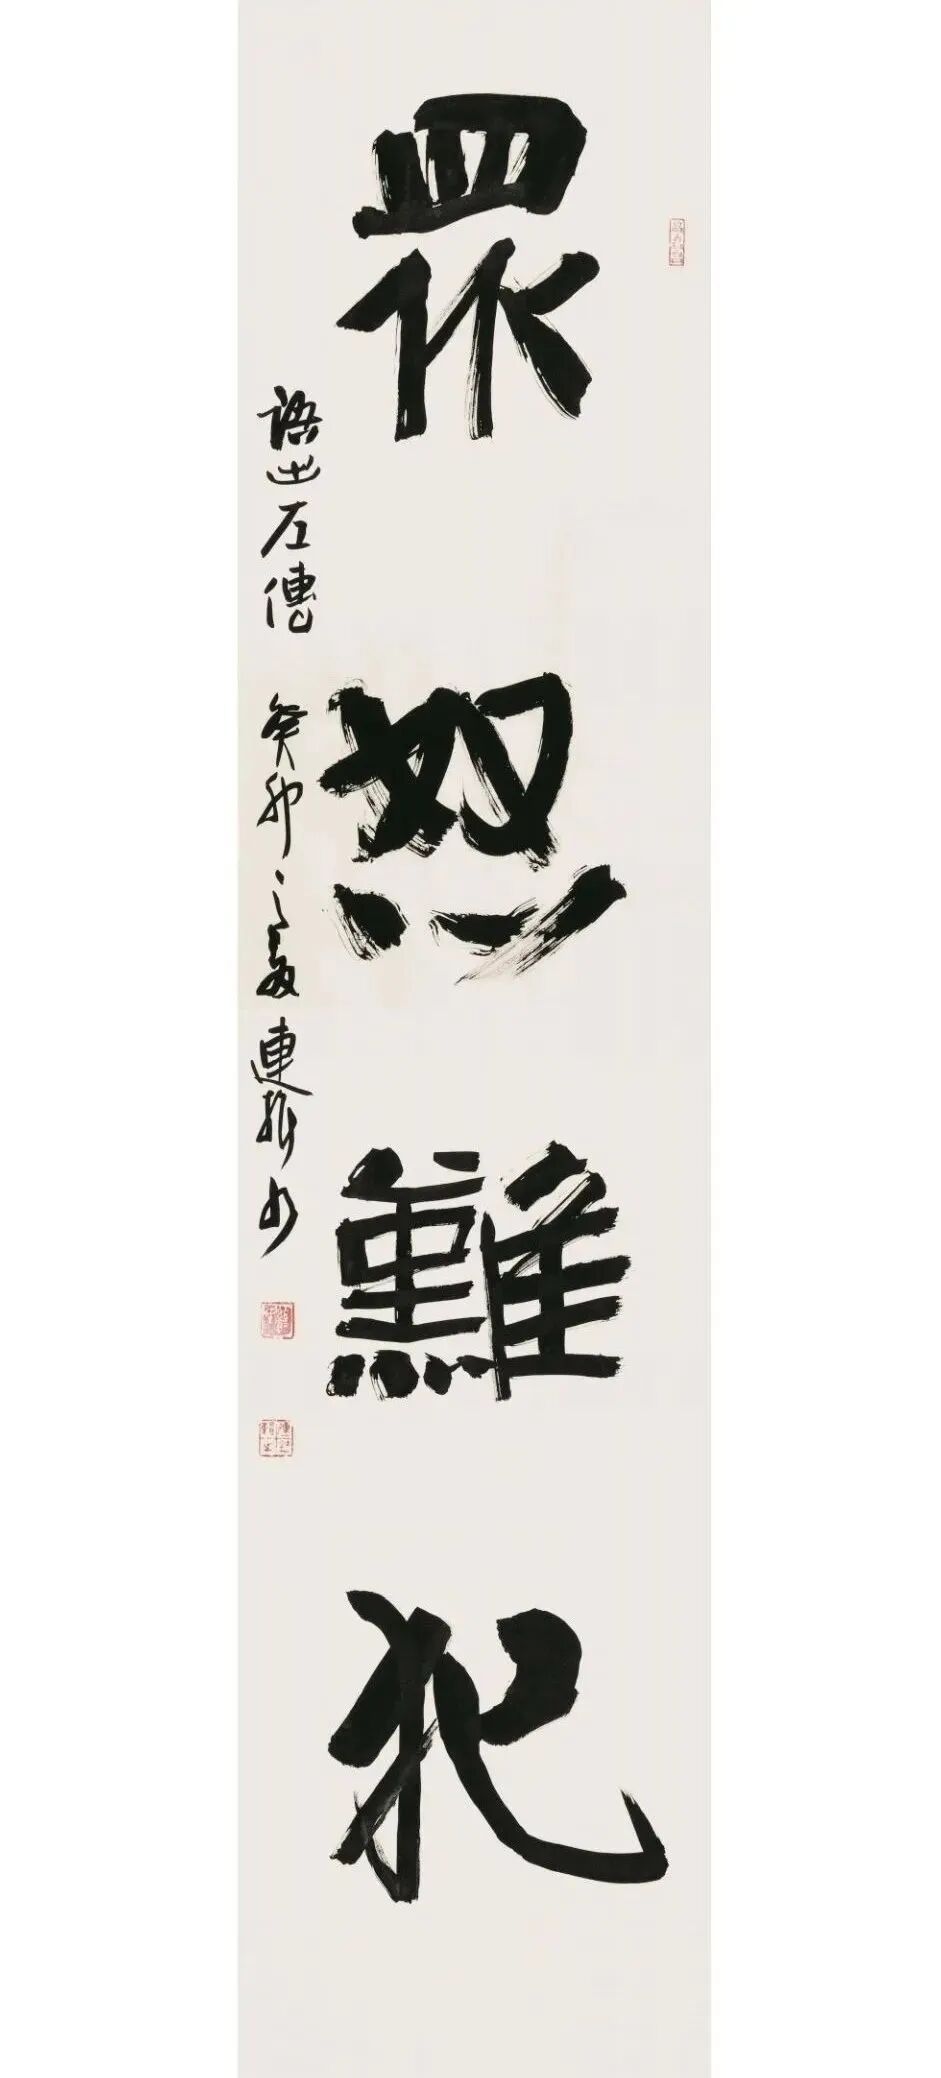 眾怒難犯
語出左傳 癸卯之夏 連振